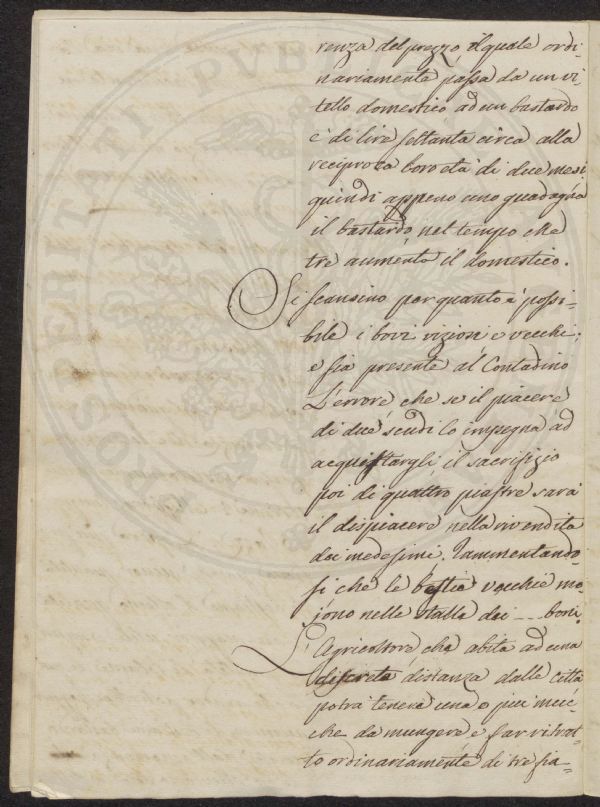 renza del prezzo il quale ordi-
nariamente passa da un vi-
tello domestico ad un bastardo
è di lire settanta circa alla
reciproca loro età di due mesi
quindi appena uno guadagna
il bastardo, nel tempo che
tre aumenta il domestico.
Si scansino per quanto è possi-
bile i bovi viziosi e vecchi;
e sia presente al Contadino
L'errore, che se il piacere
di due scudi lo impegna ad
acquistargli, il sacrifizio
poi di quattro piastre sarà
il dispiacere nella rivendita
dei medesimi. Rammentando-
si che le bestie vecchie mo-
jono nelle stalle dei --- boni.
L'Agricoltore che abita ad una
discreta distanza dalle città
potrà tenere una o più muc-
che da mungere, e far ritrat-
to ordinariamente di tre fia-
PROSPERITATI PUBLICAE